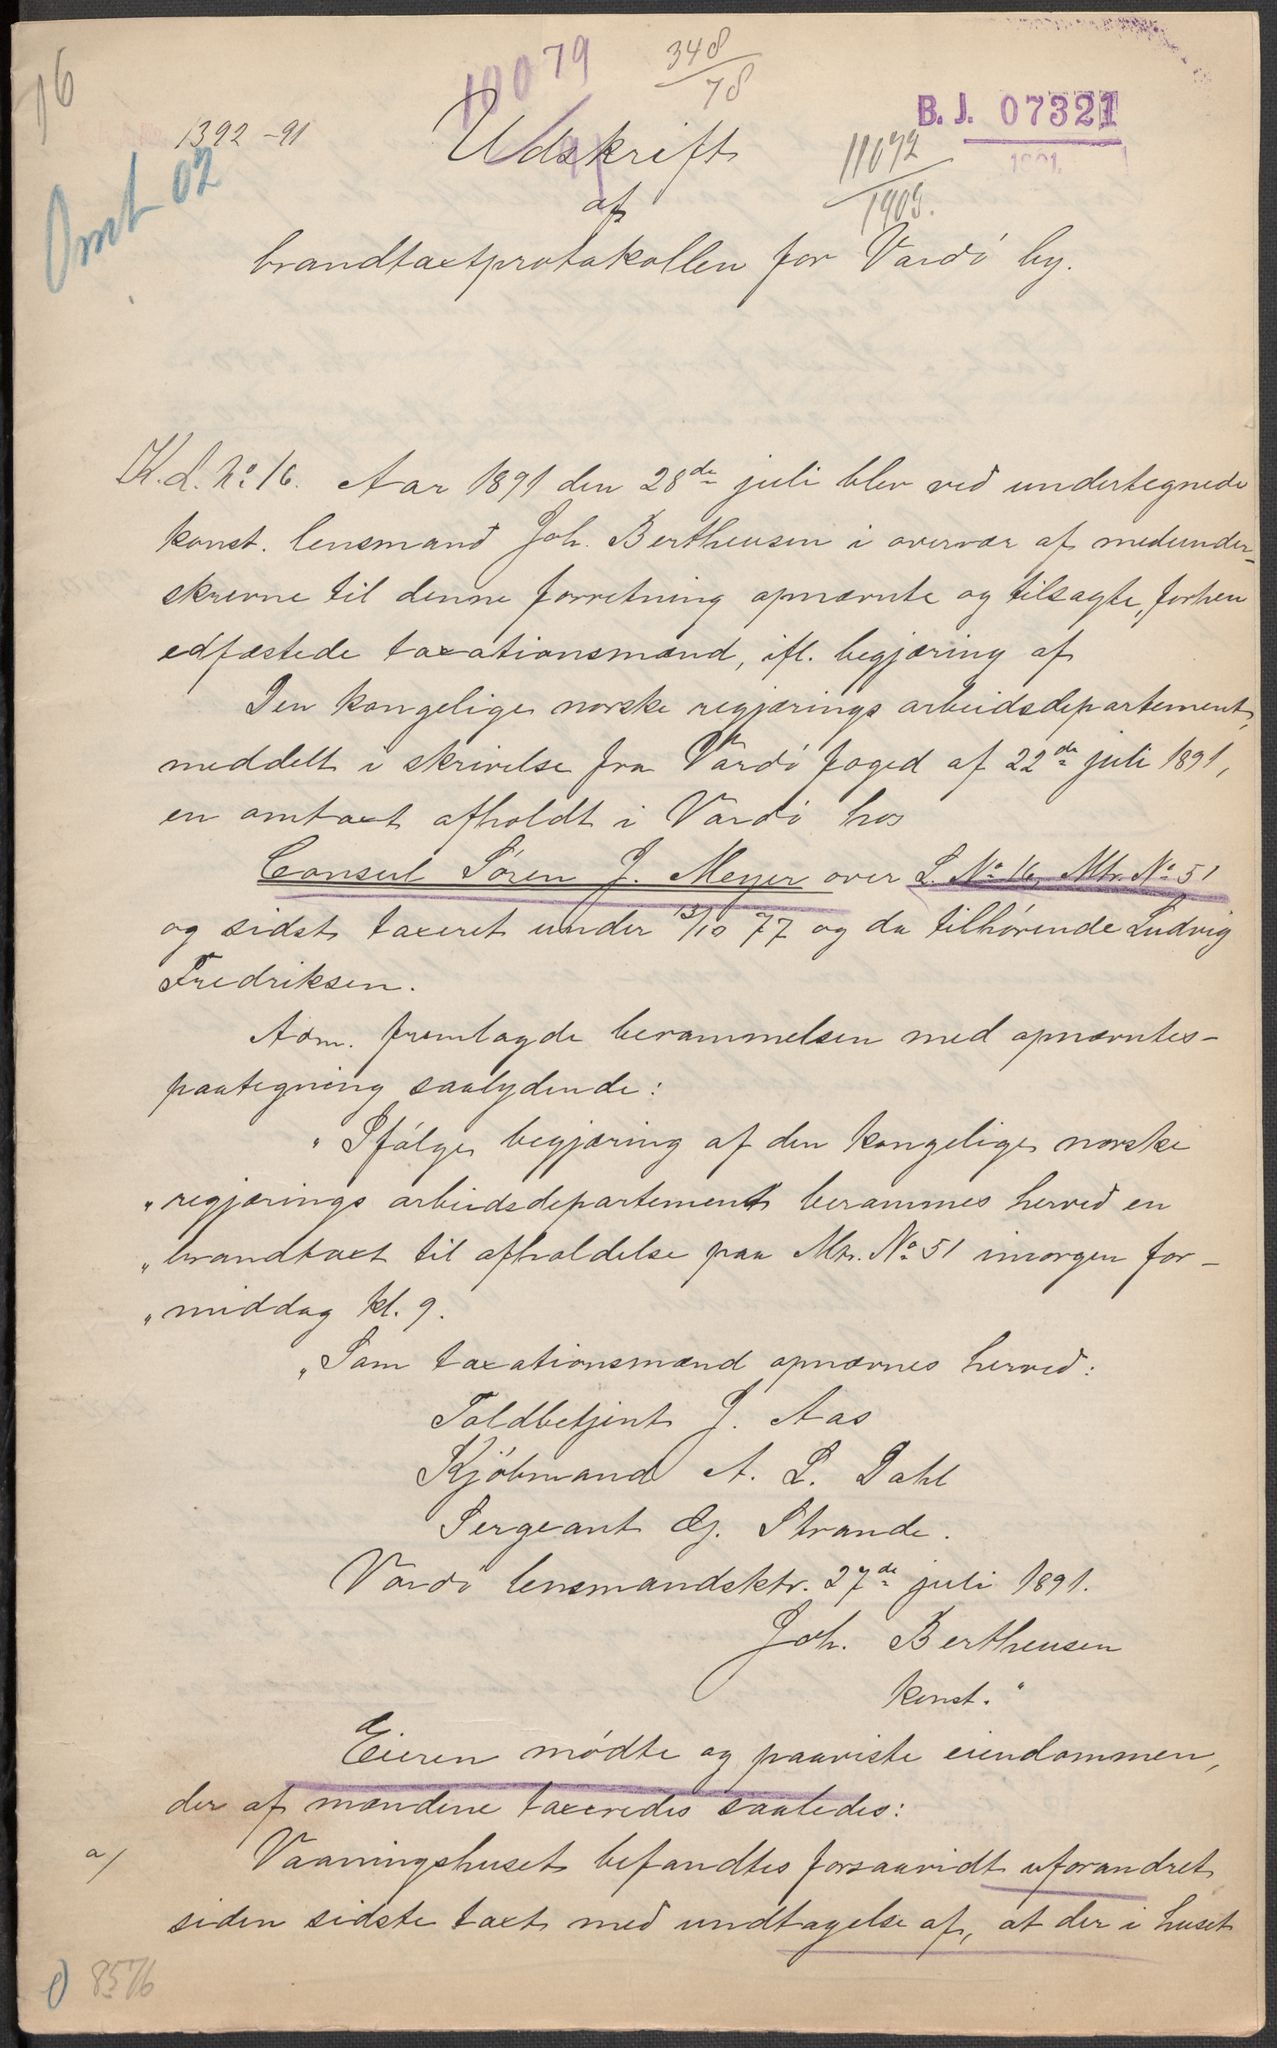 16
10079
348
78
B. J. 07321
1891.
1392-91
11072
1905.
Omt 02
Udskrift
91
af
brandtaxtprotokollen for Vardö by.
K. L. No 16. Aar 1891 den 28de juli blev ved undertegnede
konst. lensmand Joh. Bertheusen i overvær af medunder-
skrevne til denne forretning opnævnte og tilsagte, forhen
edfæstede taxationsmænd, ifl. begjæring af
Den kongelige norske regjærings arbeidsdepartement,
meddelt i skrivelse fra Vardö foged af 22de juli 1891,
en omtaxt afholdt i Vardö hos
Consul Sören J. Meyer over L. No 16, Mtr. No 51
og sidst taxeret under 13/10 77 og da tilhörende Ludvig
Fredriksen.
Adm. fremlagde berammelsen med opnævntes-
paategning saalydende:
"Ifölge begjæring af den kongelige norske
"regjærings arbeidsdepartement berammes herved en
"brandtaxt til afholdelse paa Mtr. No 51 imorgen for-
"middag kl. 9.
"Som taxationsmænd opnævnes herved:
Toldbetjent J. Aas
Kjöbmand A. L. Dahl
Sergeant Gj. Strande.
Vardö lensmandsktr. 27de juli 1891.
Joh. Bertheusen
konst."
Eieren mödte og paaviste eiendommen,
der af mændene taxeredes saaledes:
a/ Vaaningshuset befandtes forsaavidt uforandret
siden sidste taxt med undtagelse af, at der i huset
8576